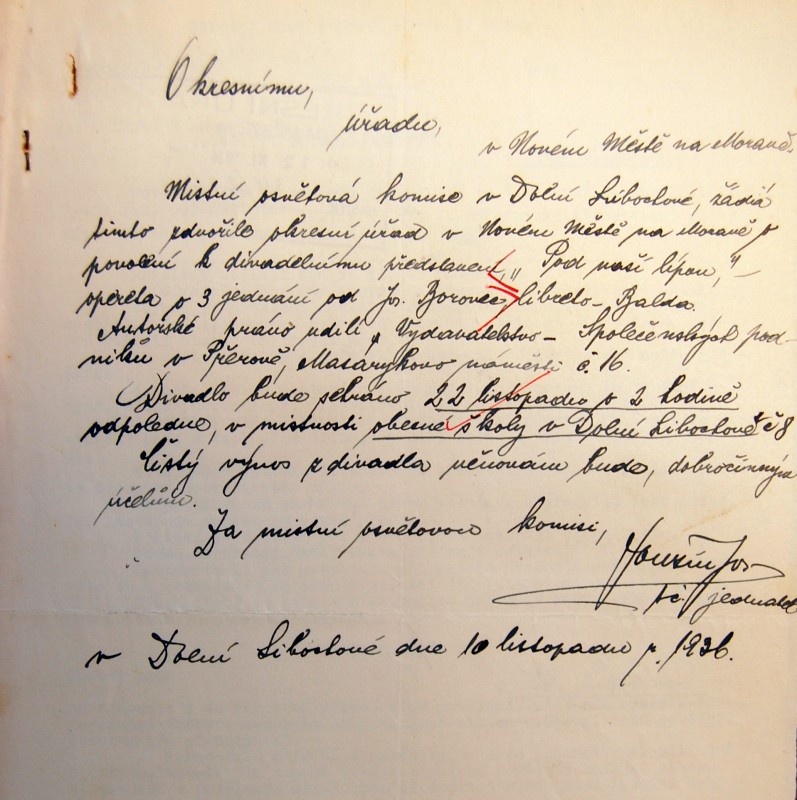 Okresnímu,
úřadu,
v Novém Městě na Moravě.
Mistní osvětová komise v Dolní Libochové, žádá
timto zdvořile okresní úřad v Novém Městě na Moravě o
povolení k divadelnímu představení, „Pod naší lípou,"–
opereta o 3 jednání od Jos. Borovec, libreto – Balda.
Autorské právo udili „Vydavatelstvo – Společenských pod-
niků v Přerově, Masárykovo náměstí č. 16.
Divadlo bude sehráno 22 listopadu o 2 hodině
odpoledne, v mistnosti obecné školy v Dolní Libochové č 8
Čistý výnos z divadla věnovám bude, dobročinným
účelům.
Za mistní osvětovou komisi,
Jos
tč. jednatel
v Dolní Libochové dne 10 listopadu r. 1936.